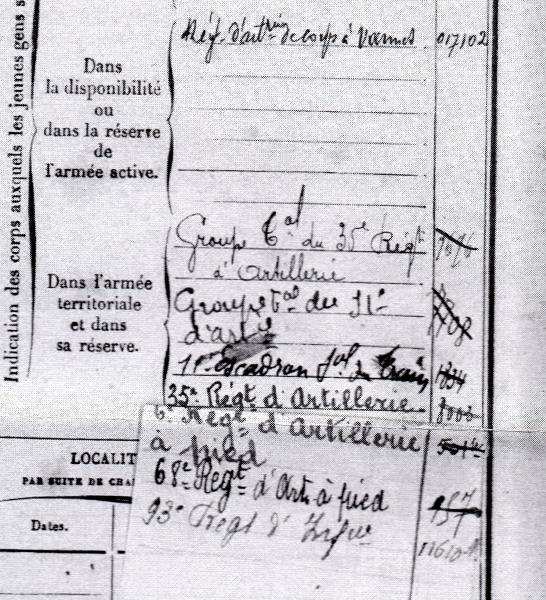 Indication des corps auxquels les jeunes gens s
Dans
la disponibilité
ou
dans la réserve
de
l'armée active.
Rég. d'art de corps à Vannes 017102
Dans l'armée
territoriale
et dans
sa réserve.
Groupe tal du 35e Régt
d'Artillerie
Groupe tal du 11e
d'art
11e escadron tal du Train 1834
35e Régt d'Artillerie
6e Régt d'Artillerie
à pied
68e Régt d'Art. à pied 957
93e Régt d'Infie
LOCALIT
PAR SUITE DE CHA
Dates.